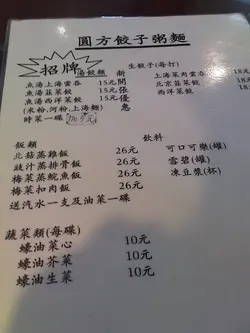 圓方餃子粥麵
招牌 湯餃麵
新開張優惠
魚湯上海雲吞 15元
魚湯韮菜餃 15元
魚湯西洋菜餃 15元
(米粉,河粉,上海麵)
時菜一碟
生餃子(每打)
上海菜肉雲吞 18元
北京韮菜餃 18元
西洋菜餃 18元
飯類
北菇蒸雞飯 26元
豉汁蒸排骨飯 26元
梅菜蒸鯇魚飯 26元
梅菜扣肉飯 26元
送汽水一支及油菜一碟
飲料
可口可樂(罐)
雪碧(罐)
凍豆漿(杯)
蔬菜類(每碟)
蠔油菜心 10元
蠔油芥菜 10元
蠔油生菜 10元